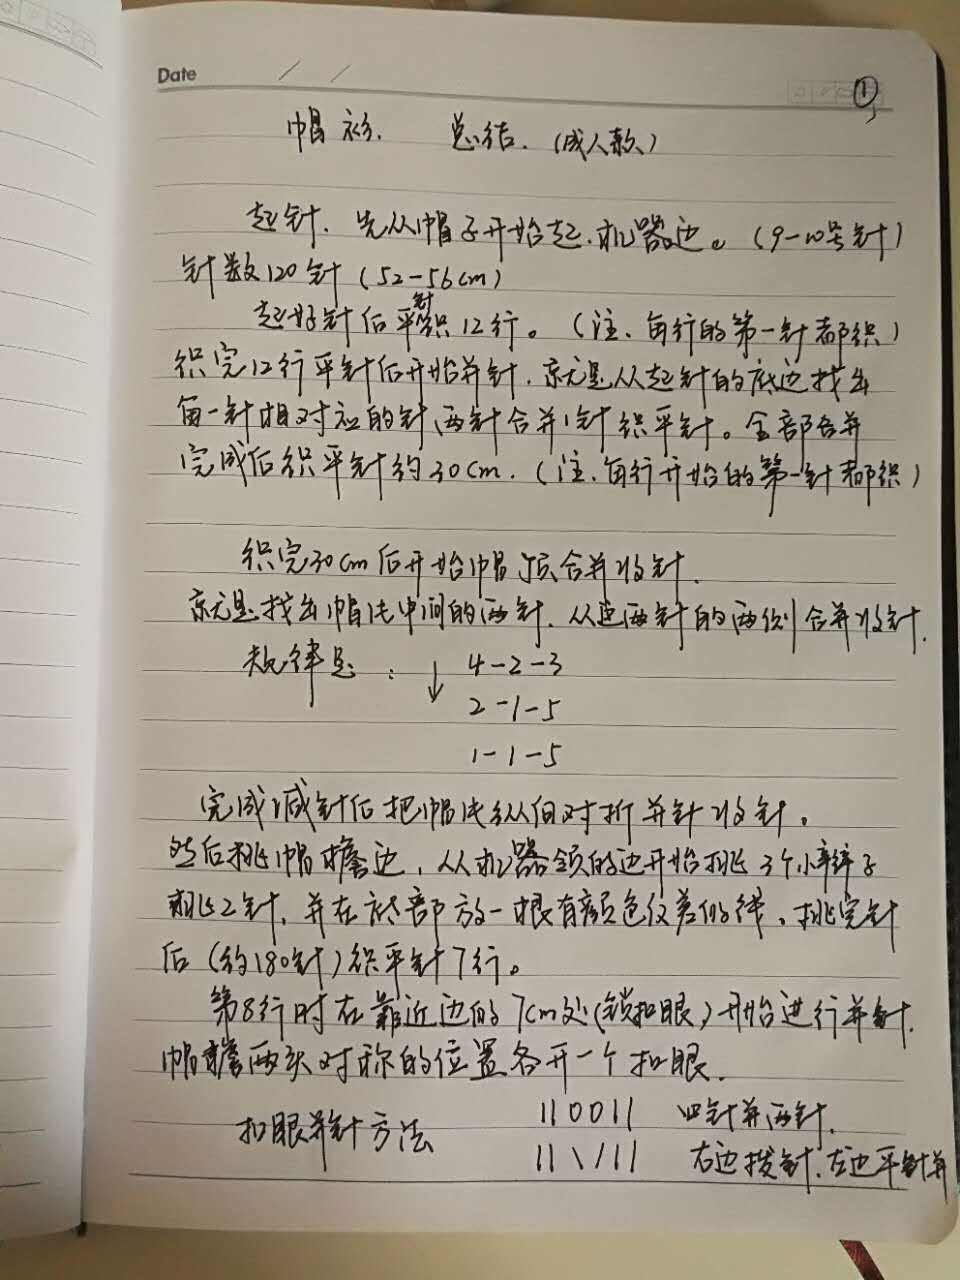 Date / /
①
帽衫. 总结.(成人款)
起针. 先从帽子开始起.机器边。(9-10号针)
针数120针(52-56cm)
起好针后平针织12行。(注.每行的第一针都织)
织完12行平针后开始并针.就是从起针的底边找出
每一针相对应的针,两针合并1针织平针。全部合并
完成后织平针约30cm.(注.每行开始的第一针都织)
织完30cm后开始帽顶合并收针.
就是找出帽片中间的两针.从这两针的两侧合并收针.
规律是:↓ 4-2-3
2-1-5
1-1-5
完成减针后把帽片纵向对折并针收针。
然后挑帽檐边,从机器领的边开始挑3个小辫子
挑2针,并在底部放一根有颜色反差的线、挑完针
后(约180针)织平针7行。
第8行时在靠近边的7cm处(锁扣眼)开始进行并针.
帽檐两头对称的位置各开一个扣眼.
扣眼并针方法 110011 四针并两针.
11\/11 右边拨针.左边平针并